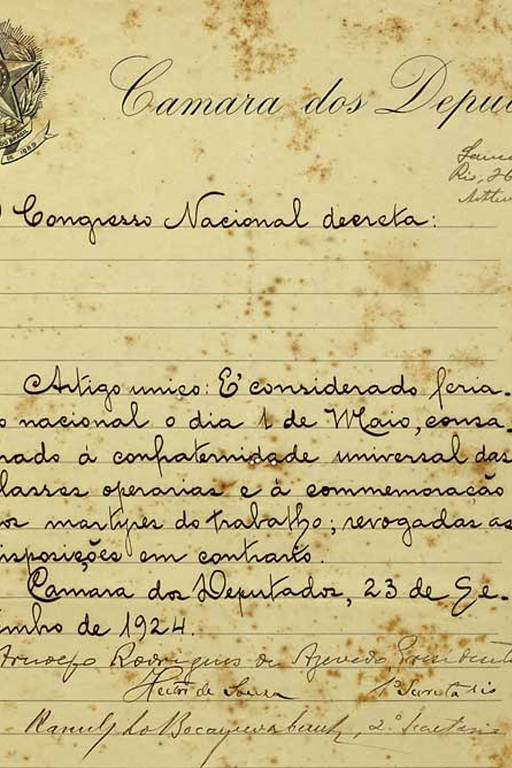 Camara dos Depu
DO BRASIL
DE 1889
Rio, 26
O Congresso Nacional decreta:
Artigo unico: E' considerado feria-
o nacional o dia 1 de Maio, consa-
rado á confraternidade universal das
lasses operarias e á commemoração
os martyres do trabalho; revogadas as
isposições em contrario.
Camara dos Deputados, 23 de Se-
embro de 1924.
Arnolfo Rodrigues de Azevedo Presidente
Heitor de Souza 1º Secretario
Ranulpho Bocayuva Cunha, 2º Secretario